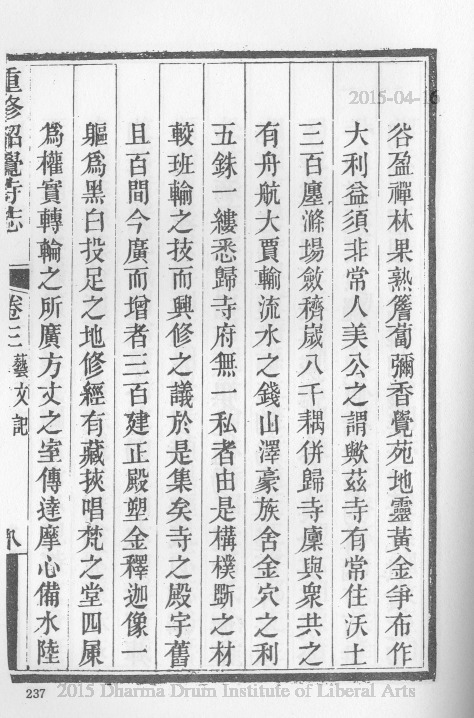 2015-04-16
谷盈禪林果熟簷蔔彌香覺苑地靈黃金爭布作
大利益須非常人美公之謂歟茲寺有常住沃土
三百廛滌場斂穧嵗八千耦併歸寺廩與衆共之
有舟航大賈輸流水之錢山澤豪族舍金穴之利
五銖一縷悉歸寺府無一私者由是構樸斲之材
較班輸之技而興修之議於是集矣寺之殿宇舊
且百間今廣而增者三百建正殿塑金釋迦像一
軀爲黑白投足之地修經有藏挾唱梵之堂四屎
爲權實轉輪之所廣方丈之室傳達摩心備水陸
重修昭覺寺志
卷三
藝文
記
八
237
2015 Dharma Drum Institute of Liberal Arts